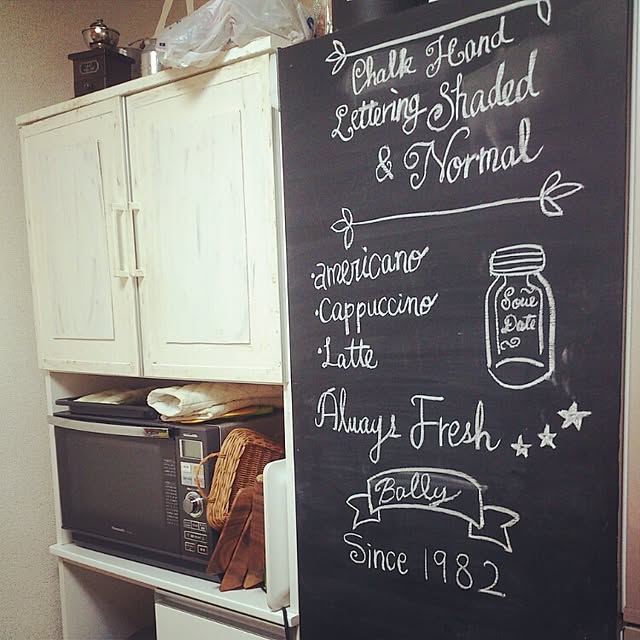 Chalk Hand
Lettering Shaded
& Normal
·americano
·Cappuccino
·Latte
Save
Date
Always Fresh
Bally
Since 1982
Panasonic